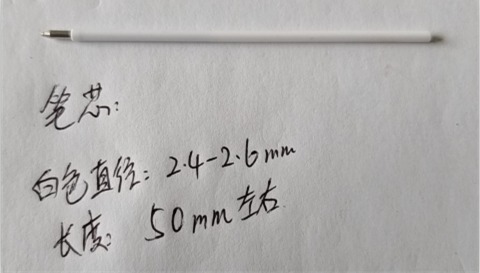 笔芯:
白色直径: 2.4-2.6mm
长度: 50mm左右